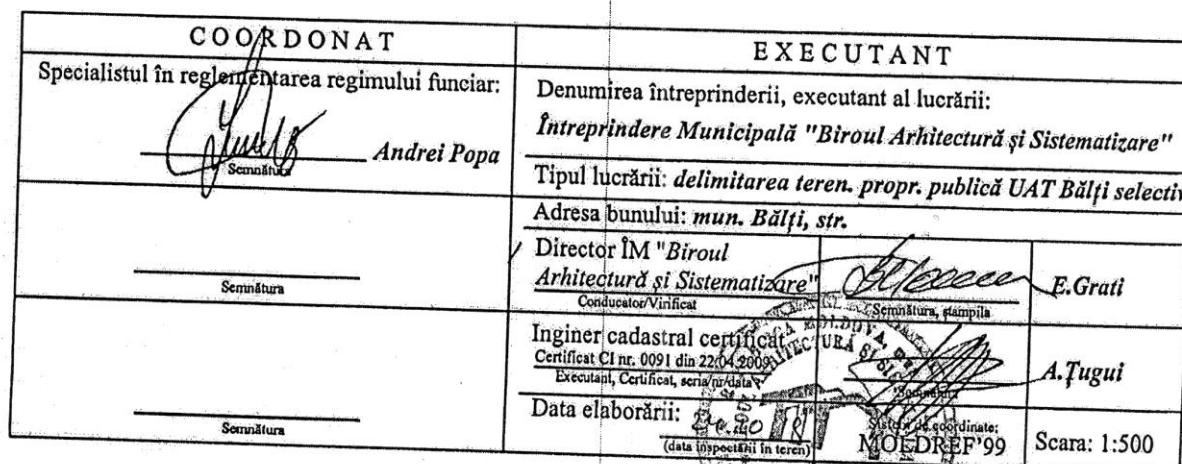 COORDONAT
Specialistul în reglementarea regimului funciar:
Andrei Popa
Semnătura
Semnătura
Semnătura
EXECUTANT
Denumirea întreprinderii, executant al lucrării:
Întreprindere Municipală "Biroul Arhitectură și Sistematizare"
Tipul lucrării: delimitarea teren. propr. publică UAT Bălți selectiv
Adresa bunului: mun. Bălți, str.
Director ÎM "Biroul
Arhitectură și Sistematizare"
Conducator/Virificat
Semnătura, stampila
E.Grati
Inginer cadastral certificat
Certificat CI nr. 0091 din 22.04.2009
Executant, Certificat, seria/nr/data
Semnătura
A.Țugui
Data elaborării:
(data inspectării în teren)
Sistem de coordinate:
MOLDREF'99
Scara: 1:500